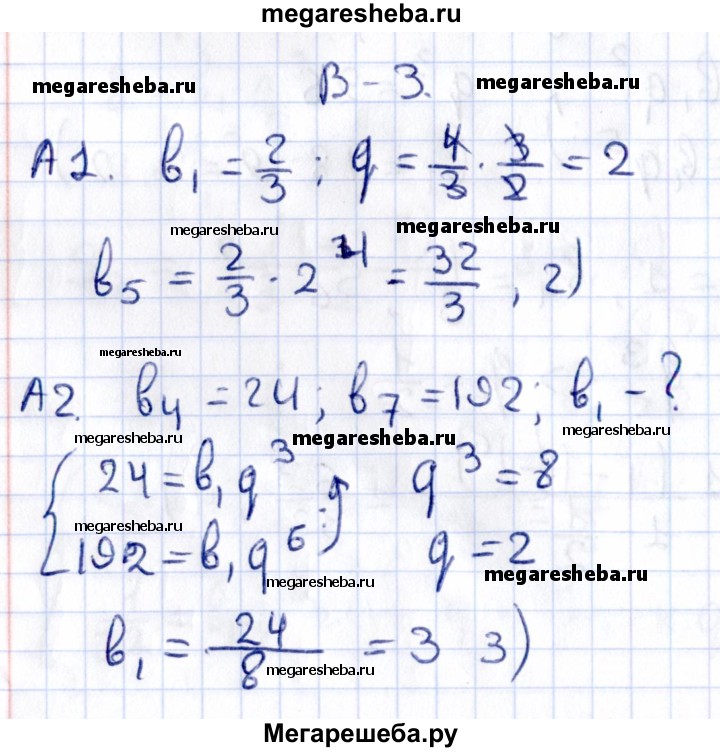 megaresheba.ru
megaresheba.ru В – 3. megaresheba.ru
А1. b₁ = 2/3 ; q = 4/3 · 3/2 = 2
megaresheba.ru megaresheba.ru
b₅ = 2/3 · 2⁴ = 32/3 , 2)
megaresheba.ru
А2. b₄ = 24 ; b₇ = 192 ; b₁ – ?
megaresheba.ru megaresheba.ru megaresheba.ru
{ 24 = b₁q³ q³ = 8
megaresheba.ru
192 = b₁q⁶ : q = 2
megaresheba.ru megaresheba.ru
b₁ = 24/8 = 3 3)
megaresheba.ru
Мегарешеба.ру